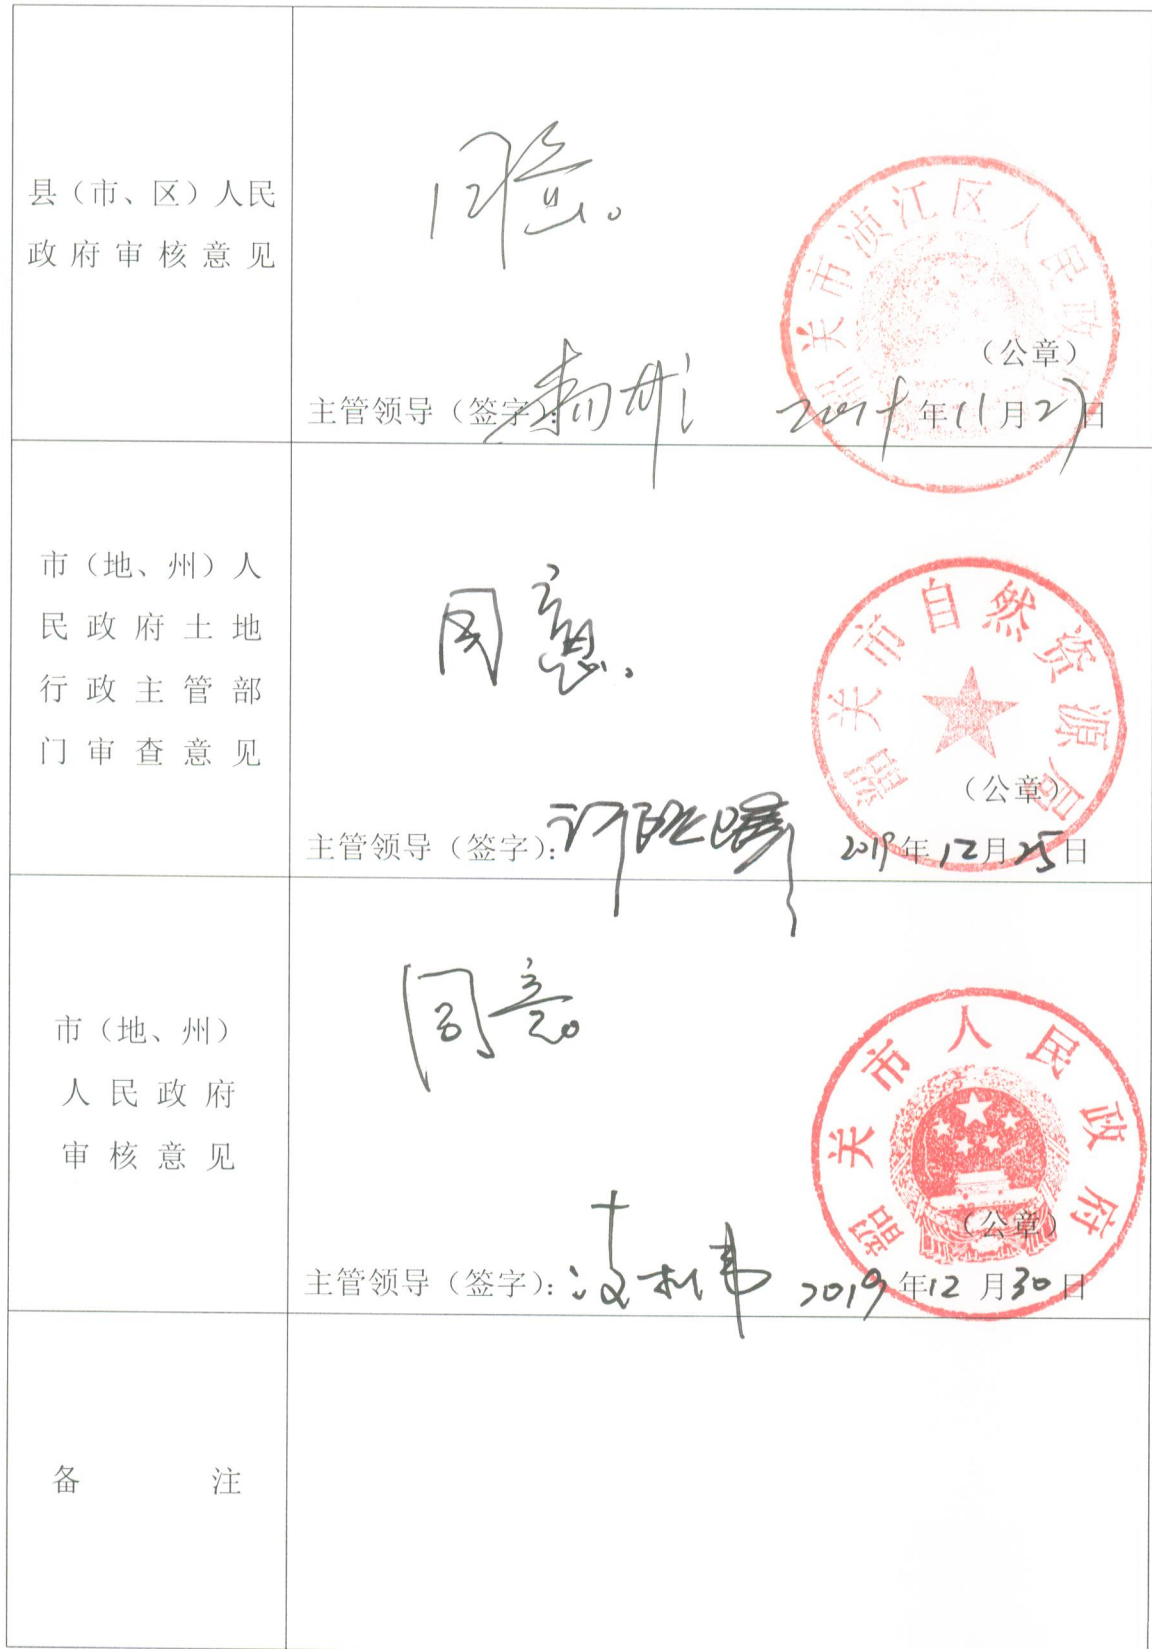 县（市、区）人民
政府审核意见
同意。
韶关市浈江区人民政府
（公章）
主管领导（签字）：
2019年11月27日
市（地、州）人
民政府土地
行政主管部
门审查意见
同意。
韶关市自然资源局
（公章）
主管领导（签字）：
2019年12月25日
市（地、州）
人民政府
审核意见
同意。
韶关市人民政府
（公章）
主管领导（签字）：
2019年12月30日
备注